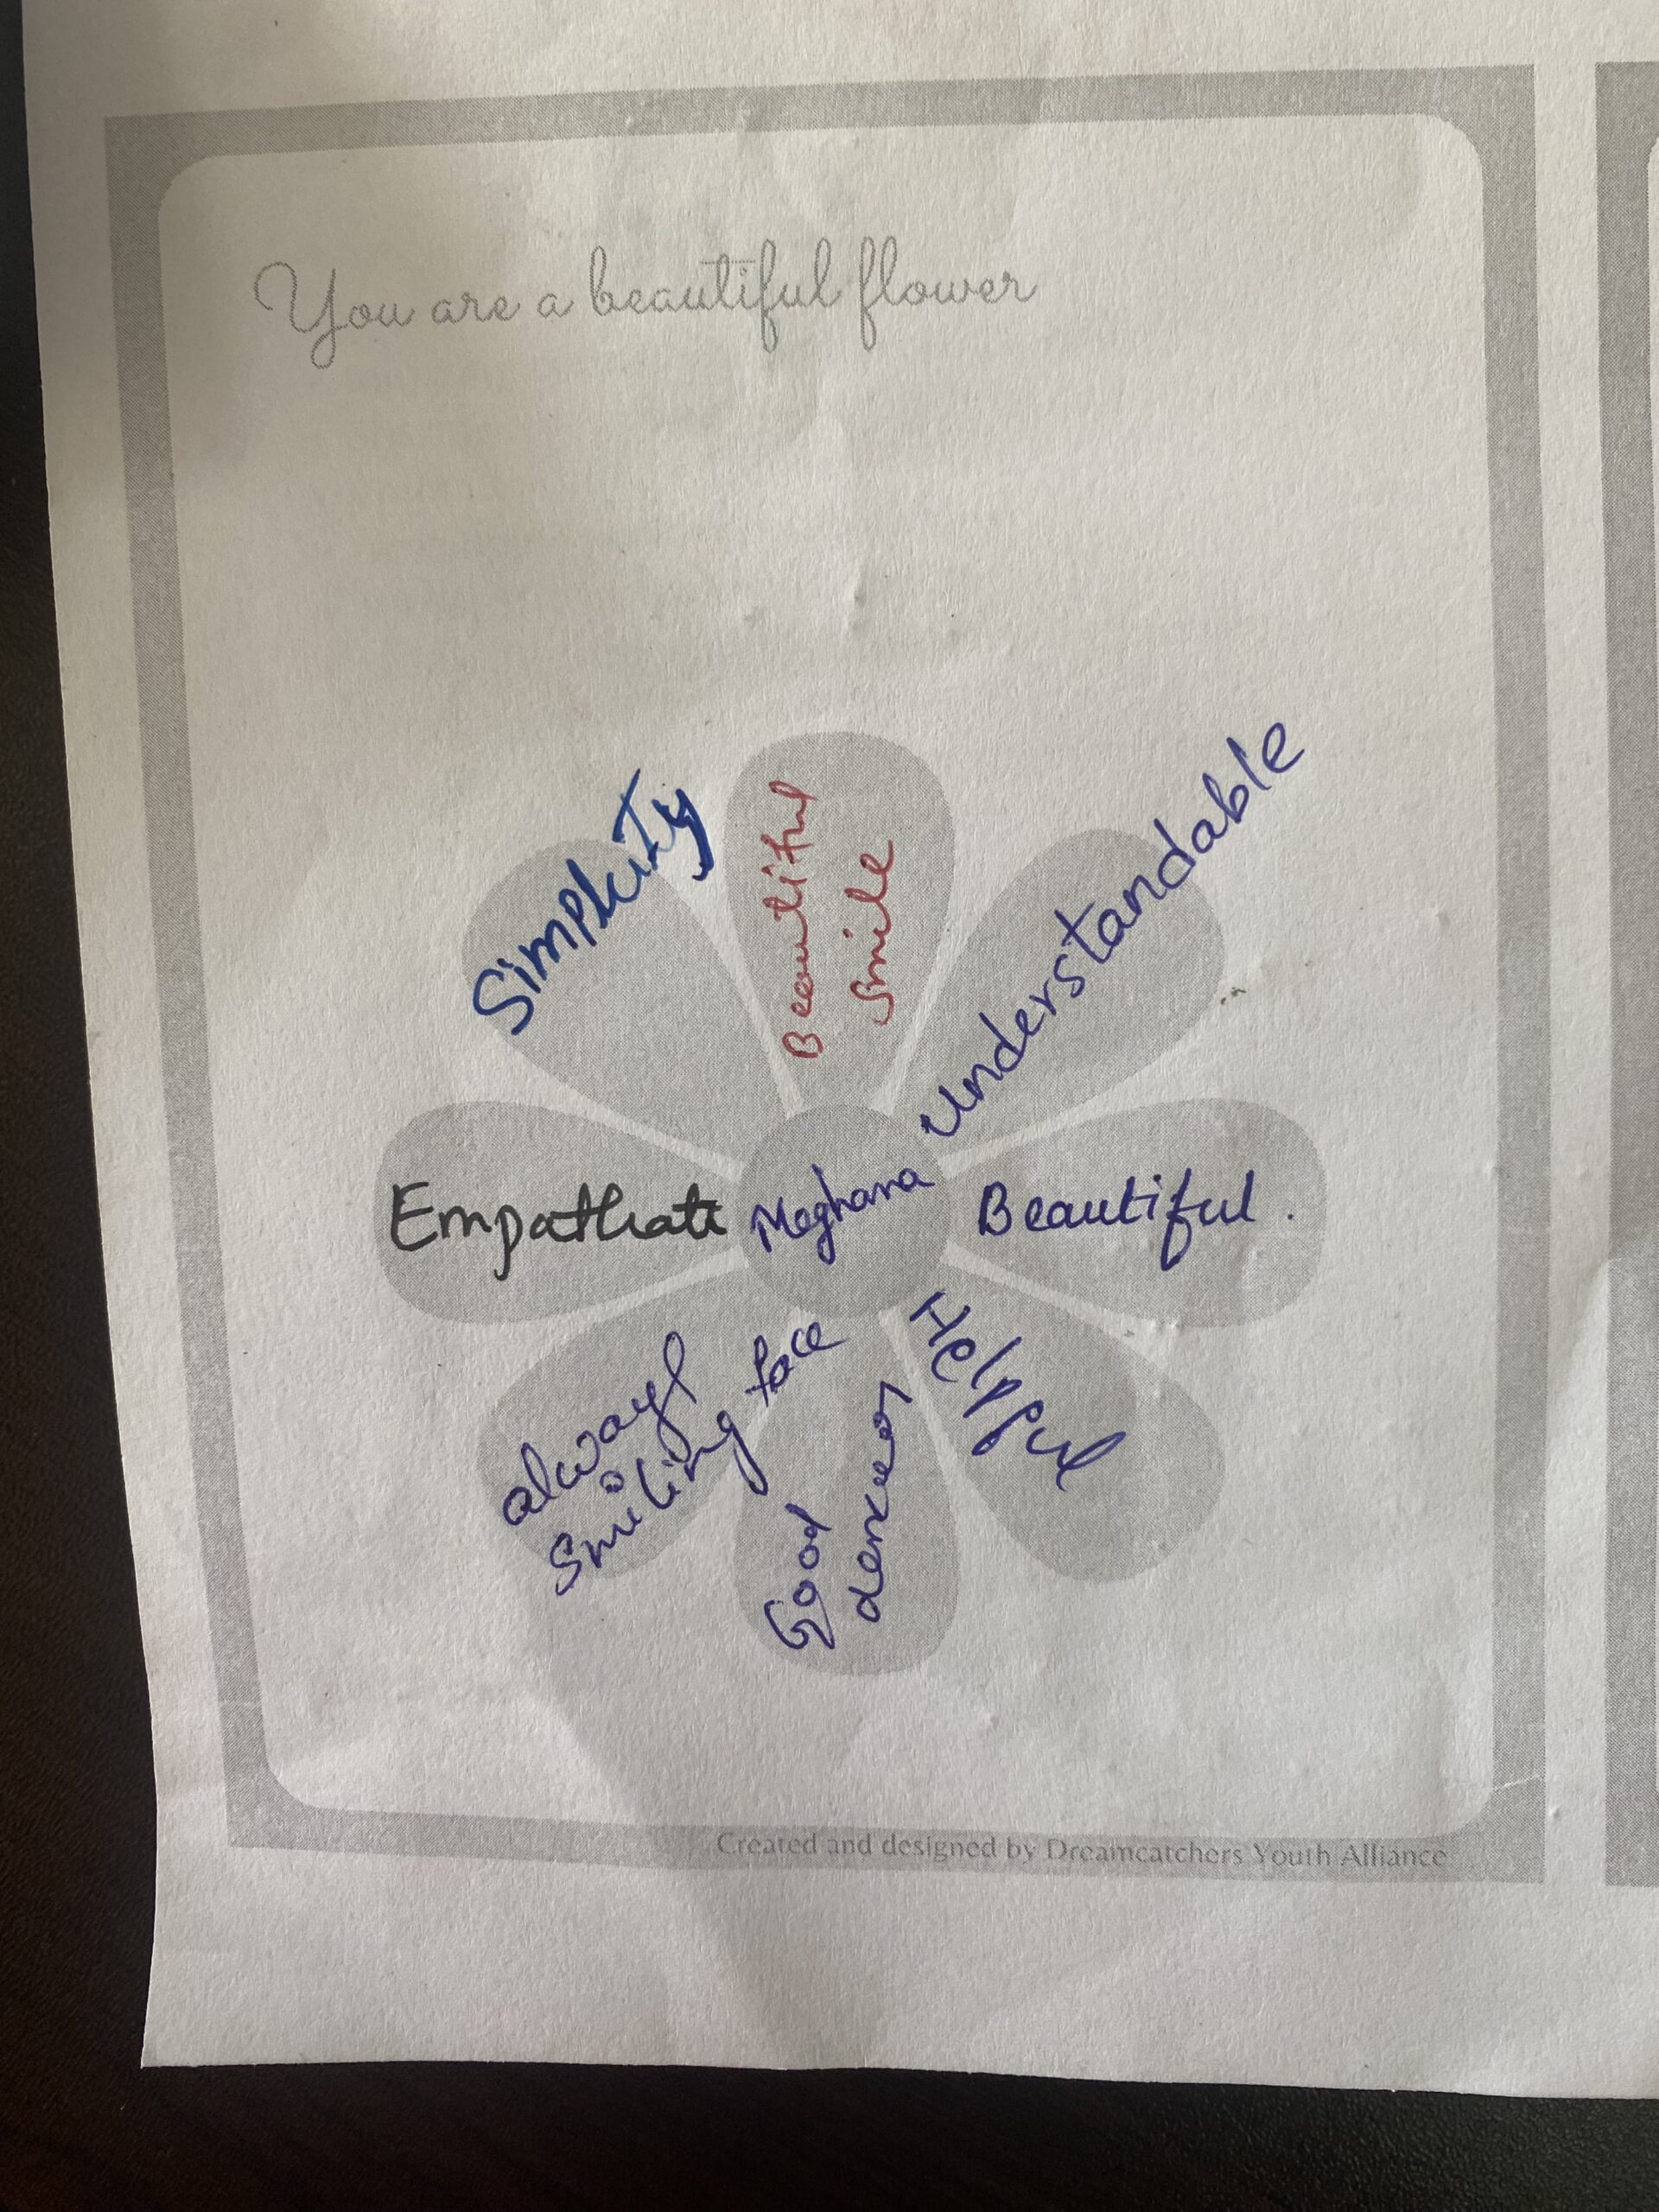 You are a beautiful flower
Simplicity
Beautiful
smile
Understandable
Empathate
Meghana
Beautiful.
always
smiling face
Good
Helpful
Created and designed by Dreamcatchers Youth Alliance